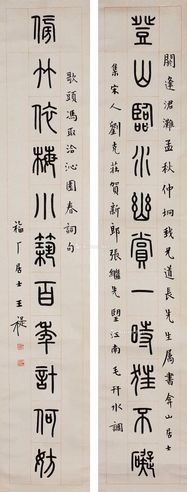 閼逢涒灘孟秋仲坰我兄道長先生屬書弇山居士
登山臨水幽賞一時狂不礙
集宋人劉克莊賀新郎張繼先望江南毛幵水調
歌頭馮取洽沁園春詞句
傍竹依梅小築百年計何妨
福厂居士王禔